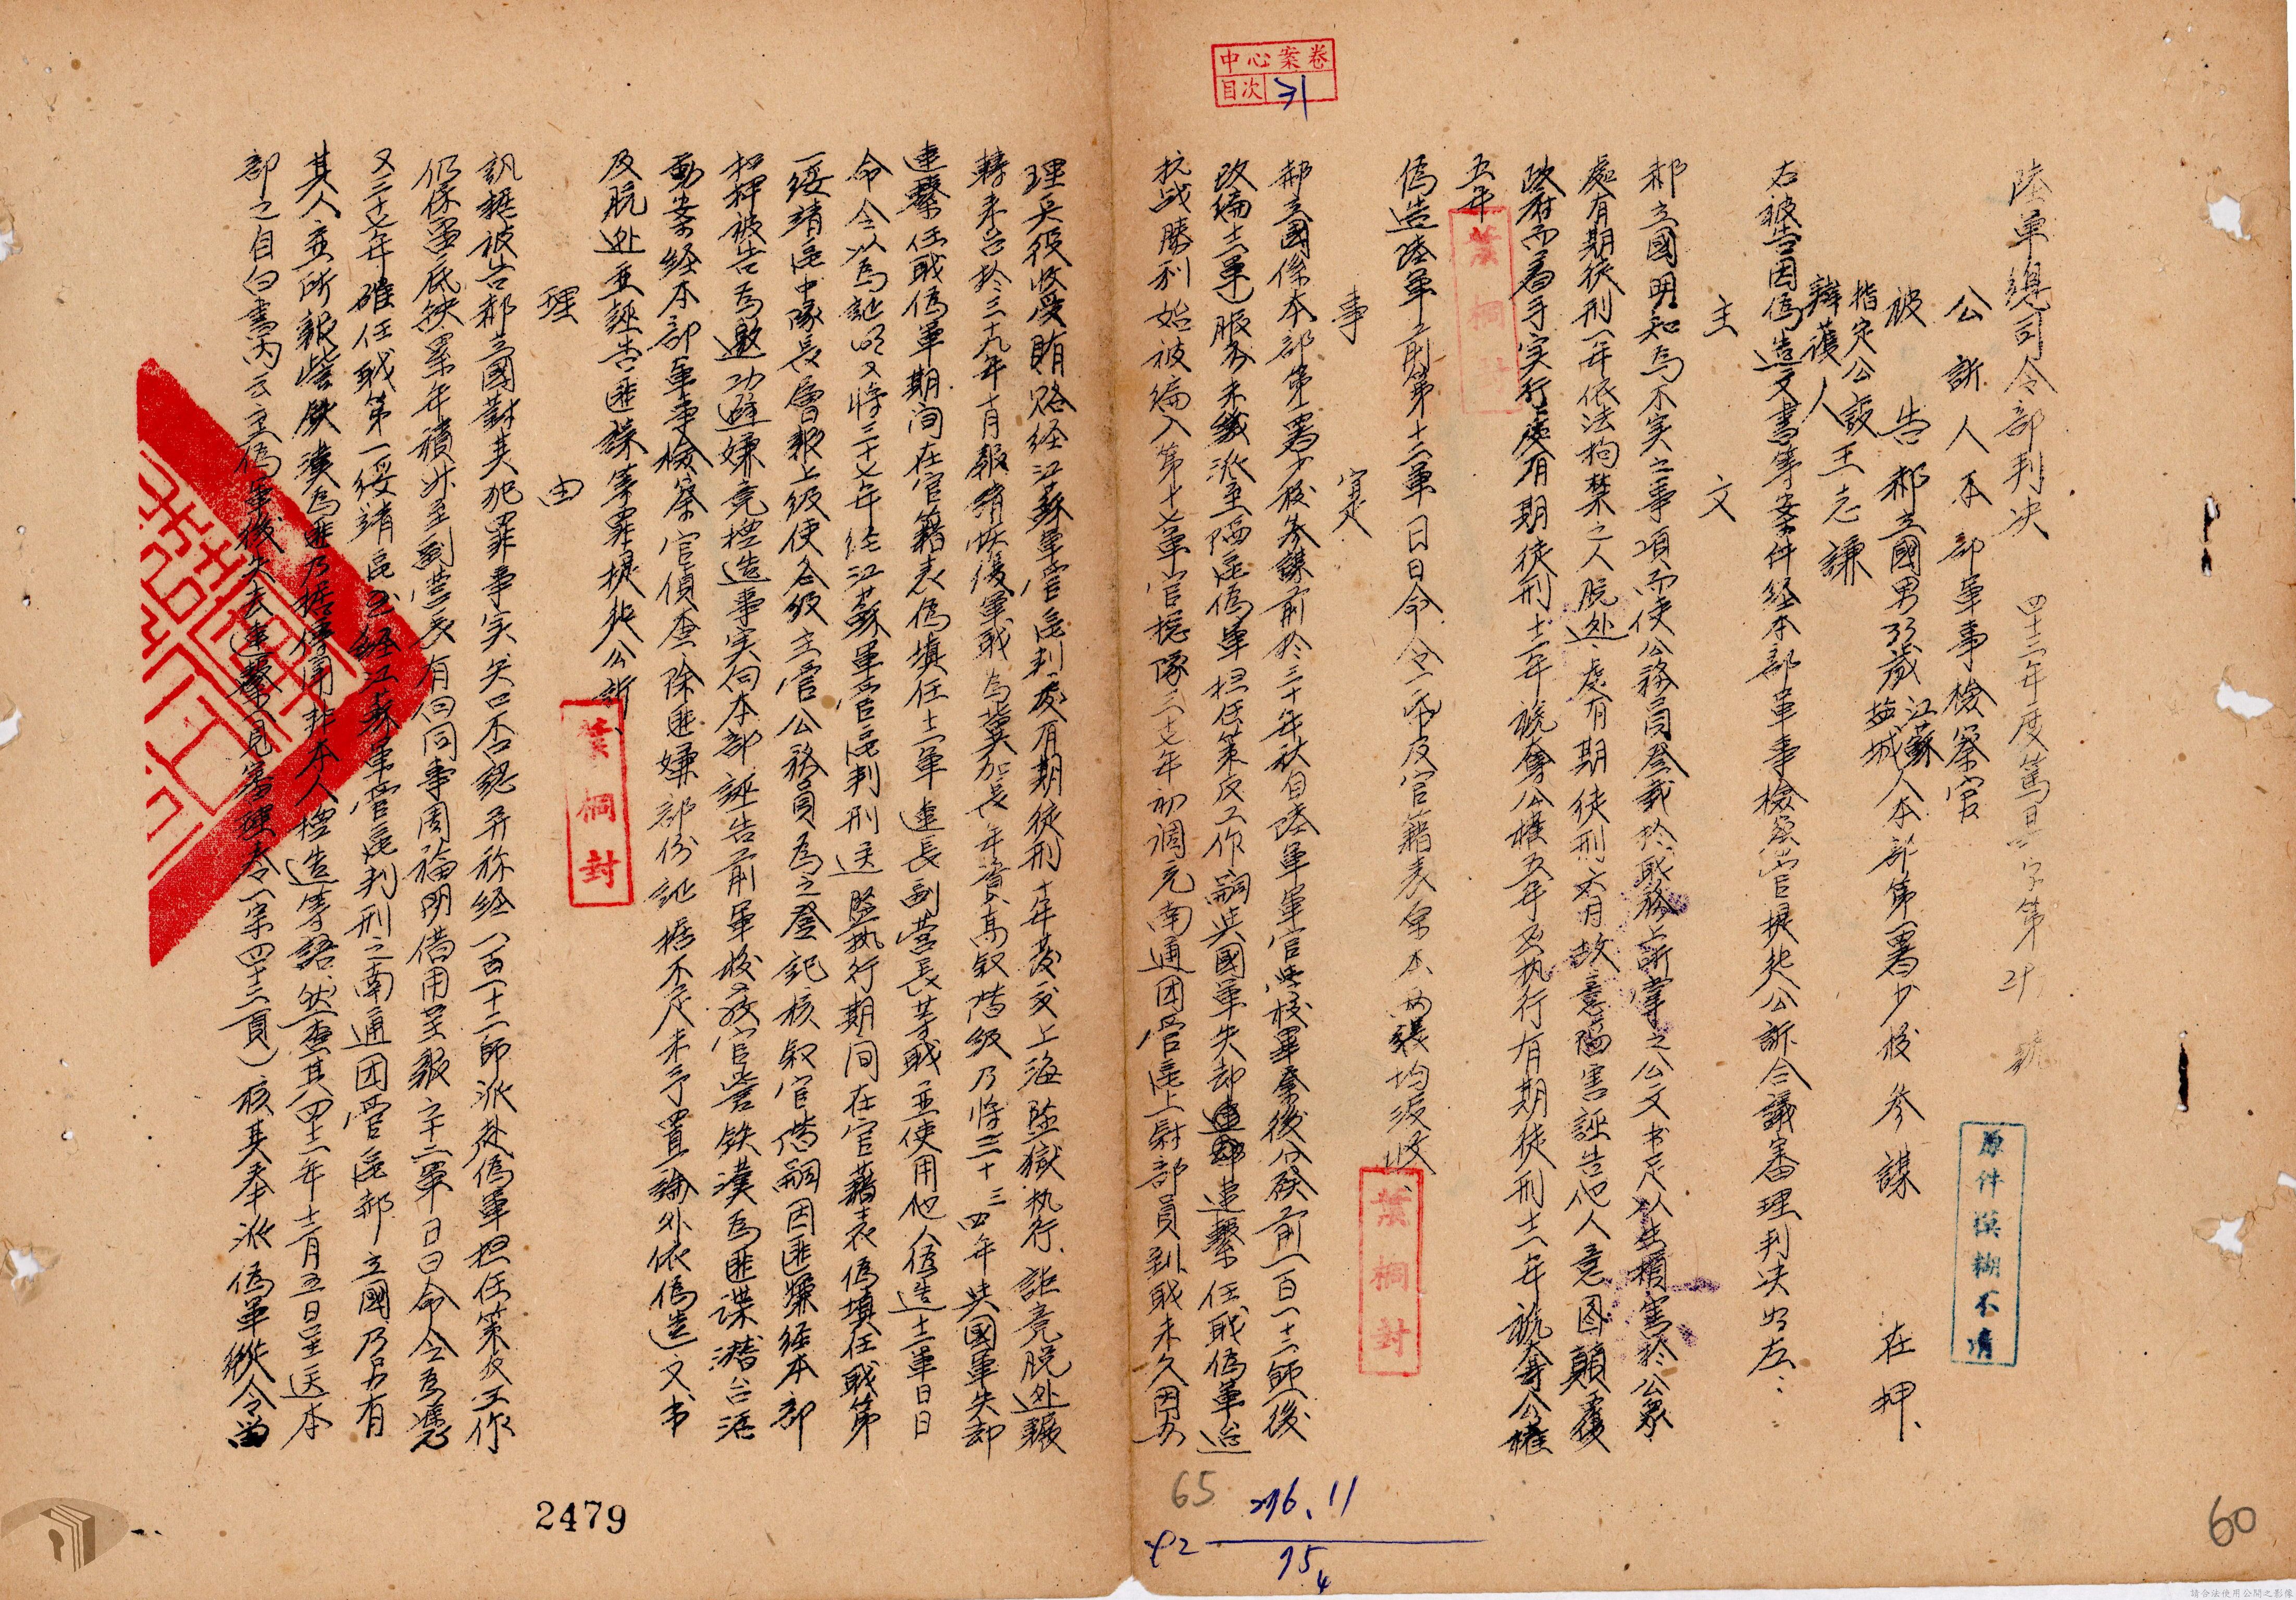 中心案卷
目次
陸軍總司令部判决 四十三年度篤
公訴人本部軍事檢察官
被告郝立國男33歲江蘇鹽城人本部第一署少校參謀 在押、
指定公設辯護人王志謙
右被告因偽造文書等案件經本部軍事檢察官提起公訴合議審理判决如左：
主文
郝立國明知為不实之事項而使公務員登載於职務上所掌之公文书足以生損害於公眾
處有期徒刑一年依法拘禁之人脱逃、處有期徒刑六月故意陷害誣告他人意图顛覆
政府而着手实行處有期徒刑十二年褫奪公權五年应执行有期徒刑十二年褫奪公權
五年
偽造陸軍之前第十二軍日日命令一帋及官籍表原本两張均没收、
事实
郝立國係本部第一署少校參謀前於三十年秋自陸軍軍官學校畢業後分發前一百一十二師後
改編十二軍服務未幾派至陷區偽軍担任策反工作嗣與國軍失却連繫任职偽軍迨
抗战勝利始被編入第十七軍官總隊三七年初調充南通团管區上尉部員到职未久因办
理兵役收受賄賂经江蘇軍管區判處有期徒刑十年發交上海監獄执行、詎竟脱逃輾
轉来台於三十九年十月報請恢復軍职為冀加長年資高叙階級乃將三十三四年與國軍失却
連繫任职偽軍期间在官籍表偽填任十二軍連長副营長等职並使用他人偽造十二軍日日
命令以為証明又將三十七年经江蘇軍管區判刑送監执行期间在官籍表偽填任职第
一綏靖區中隊長層報上級使各級主管公務員為之登記核叙官階嗣因匪嫌经本部
扣押被告為邀功避嫌竟揑造事实向本部誣告前軍校教官柴铁漢為匪諜潛台活
動案经本部軍事檢察官偵查除匪嫌部份証据不足未予置論外依偽造文书
及脱逃並誣告匪諜等罪提起公訴、
理由
訊據被告郝立國對其犯罪事实矢口不認并称经一百一十二師派赴偽軍担任策反工作
仍保留底缺累年積升至副营長有曰同事周福明借用呈報之十二軍日日命令為憑
又三十七年確任职第一綏靖區並经江蘇軍管區判刑之南通团管區郝立國乃另有
其人並所報柴铁漢為匪乃據傳聞非本人揑造等語、然查其四十二年十二月五日呈送本
部之自白書内云至偽軍後失去連繫（見審理卷一宗四十三頁）核其奉派偽軍縱令尚
葉桐封
葉桐封
葉桐封
原件模糊不清
2479
65
276.11
75
4
60
請合法使用公開之影像